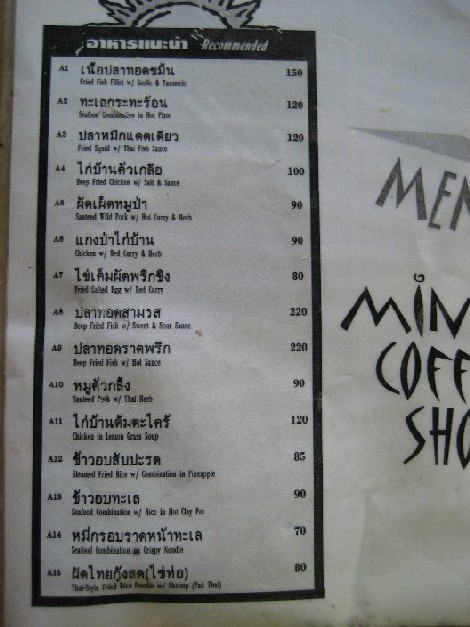 อาหารแนะนำ Recommended
A1 เนื้อปลาทอดขมิ้น 150
Fried Fish Fillet w/ Garlic & Turmeric
A2 ทะเลกระทะร้อน 120
Seafood Combination in Hot Plate
A3 ปลาหมึกแดดเดียว 120
Fried Squid w/ Thai Fish Sauce
A4 ไก่บ้านคั่วเกลือ 100
Deep Fried Chicken w/ Salt & Sauce
A5 ผัดเผ็ดหมูป่า 90
Sauteed Wild Pork w/ Hot Curry & Herb
A6 แกงป่าไก่บ้าน 90
Chicken w/ Red Curry & Herb
A7 ไข่เค็มผัดพริกขิง 80
Fried Salted Egg w/ Red Curry
A8 ปลาทอดสามรส 220
Deep Fried Fish w/ Sweet & Sour Sauce
A9 ปลาทอดราดพริก 220
Deep Fried Fish w/ Hot Sauce
A10 หมูคั่วกลิ้ง 90
Sauteed Pork w/ Thai Herb
A11 ไก่บ้านต้มตะไคร้ 120
Chicken in Lemon Grass Soup
A12 ข้าวอบสับปะรด 85
Steamed Fried Rice w/ Combination in Pineapple
A13 ข้าวอบทะเล 90
Seafood Combination w/ Rice in Hot Clay Pot
A14 หมี่กรอบราดหน้าทะเล 70
Seafood Combination on Crispy Noodle
A15 ผัดไทยกุ้งสด(ไข่ห่อ) 80
Thai-Style Fried Rice Noodle w/ Shrimp (Pad Thai)
MEN
MIN
COFF
SHO